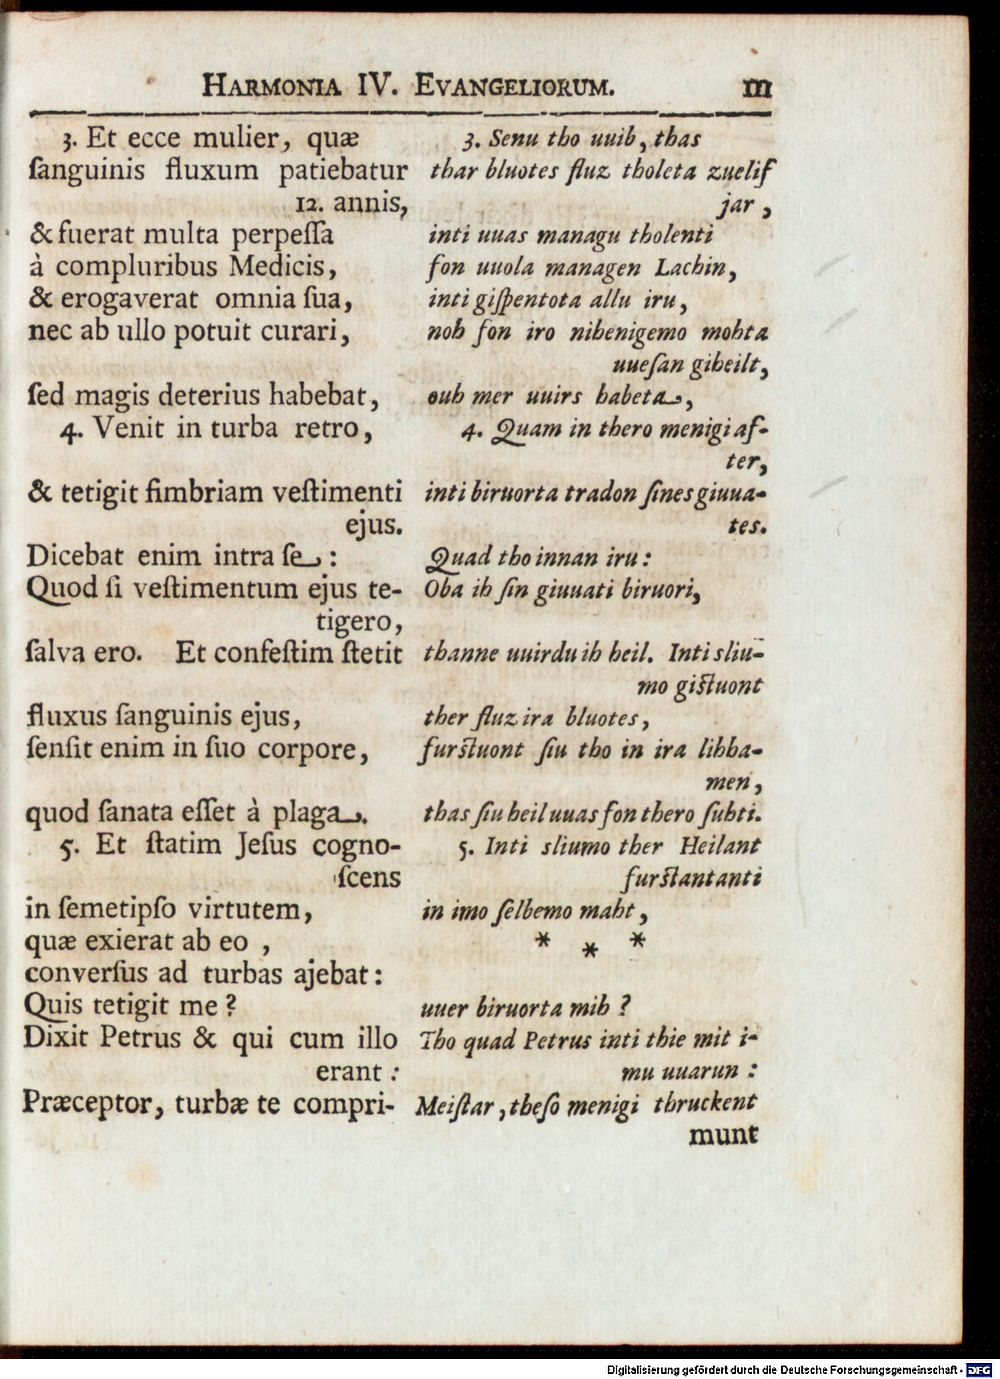 HARMONIA IV. EVANGELIORUM. 111
3. Et ecce mulier, quæ
ſanguinis fluxum patiebatur
12. annis,
& fuerat multa perpeſſa
à compluribus Medicis,
& erogaverat omnia ſua,
nec ab ullo potuit curari,
ſed magis deterius habebat,
4. Venit in turba retro,
& tetigit fimbriam veſtimenti
ejus.
Dicebat enim intra ſe:
Quod ſi veſtimentum ejus te-
tigero,
ſalva ero. Et confeſtim ſtetit
fluxus ſanguinis ejus,
ſenſit enim in ſuo corpore,
quod ſanata eſſet à plaga.
5. Et ſtatim Jeſus cogno-
ſcens
in ſemetipſo virtutem,
quæ exierat ab eo ,
converſus ad turbas ajebat:
Quis tetigit me?
Dixit Petrus & qui cum illo
erant:
Præceptor, turbæ te compri-
3. Senu tho uuib, thas
thar bluotes fluz tholeta zuelif
jar ,
inti uuas managu tholenti
fon uuola managen Lachin,
inti giſpentota allu iru,
noh fon iro nihenigemo mohta
uueſan giheilt,
ouh mer uuirs habeta,
4. Quam in thero menigi af-
ter,
inti biruorta tradon ſines giuua-
tes.
Quad tho innan iru:
Oba ih ſin giuuati biruori,
thanne uuirdu ih heil. Inti sliu-
mo giſtuont
ther fluz ira bluotes,
furſtuont ſiu tho in ira lihha-
men,
thas ſiu heil uuas fon thero ſuhti.
5. Inti sliumo ther Heilant
furſtantanti
in imo ſelbemo maht,
* * *
uuer biruorta mih ?
Tho quad Petrus inti thie mit i-
mu uuarun :
Meiſtar, theſo menigi thruckent
munt
Digitalisierung gefördert durch die Deutsche Forschungsgemeinschaft - DFG